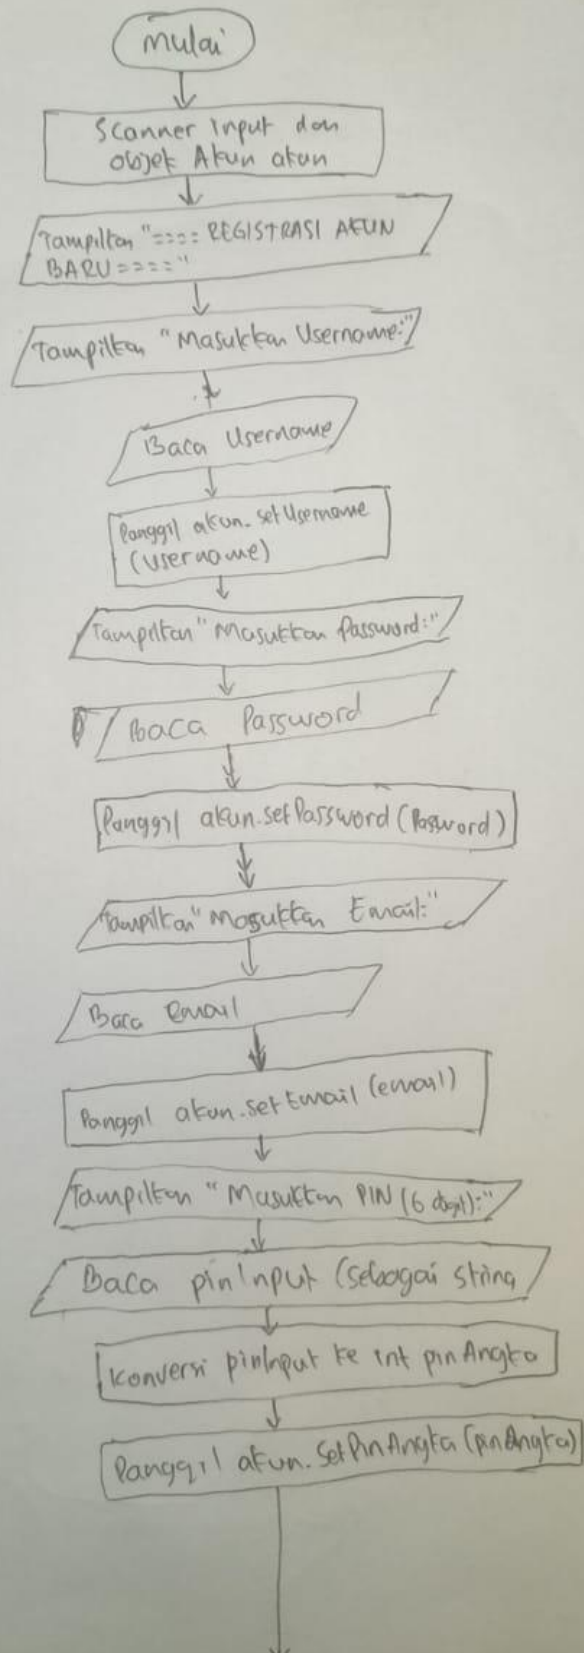 Mulai
Scanner input dan
objek Akun akun
Tampilkan "==== REGISTRASI AKUN
BARU ===="
Tampilkan "Masukkan Username:"
Baca Username
Panggil akun.setUsername
(username)
Tampilkan "Masukkan Password:"
Baca Password
Panggil akun.setPassword (Password)
Tampilkan "Masukkan Email:"
Baca email
Panggil akun.setEmail (email)
Tampilkan "Masukkan PIN (6 digit):"
Baca pinInput (sebagai string
Konversi pinInput ke int pinAngka
Panggil akun.SetPinAngka (pinAngka)